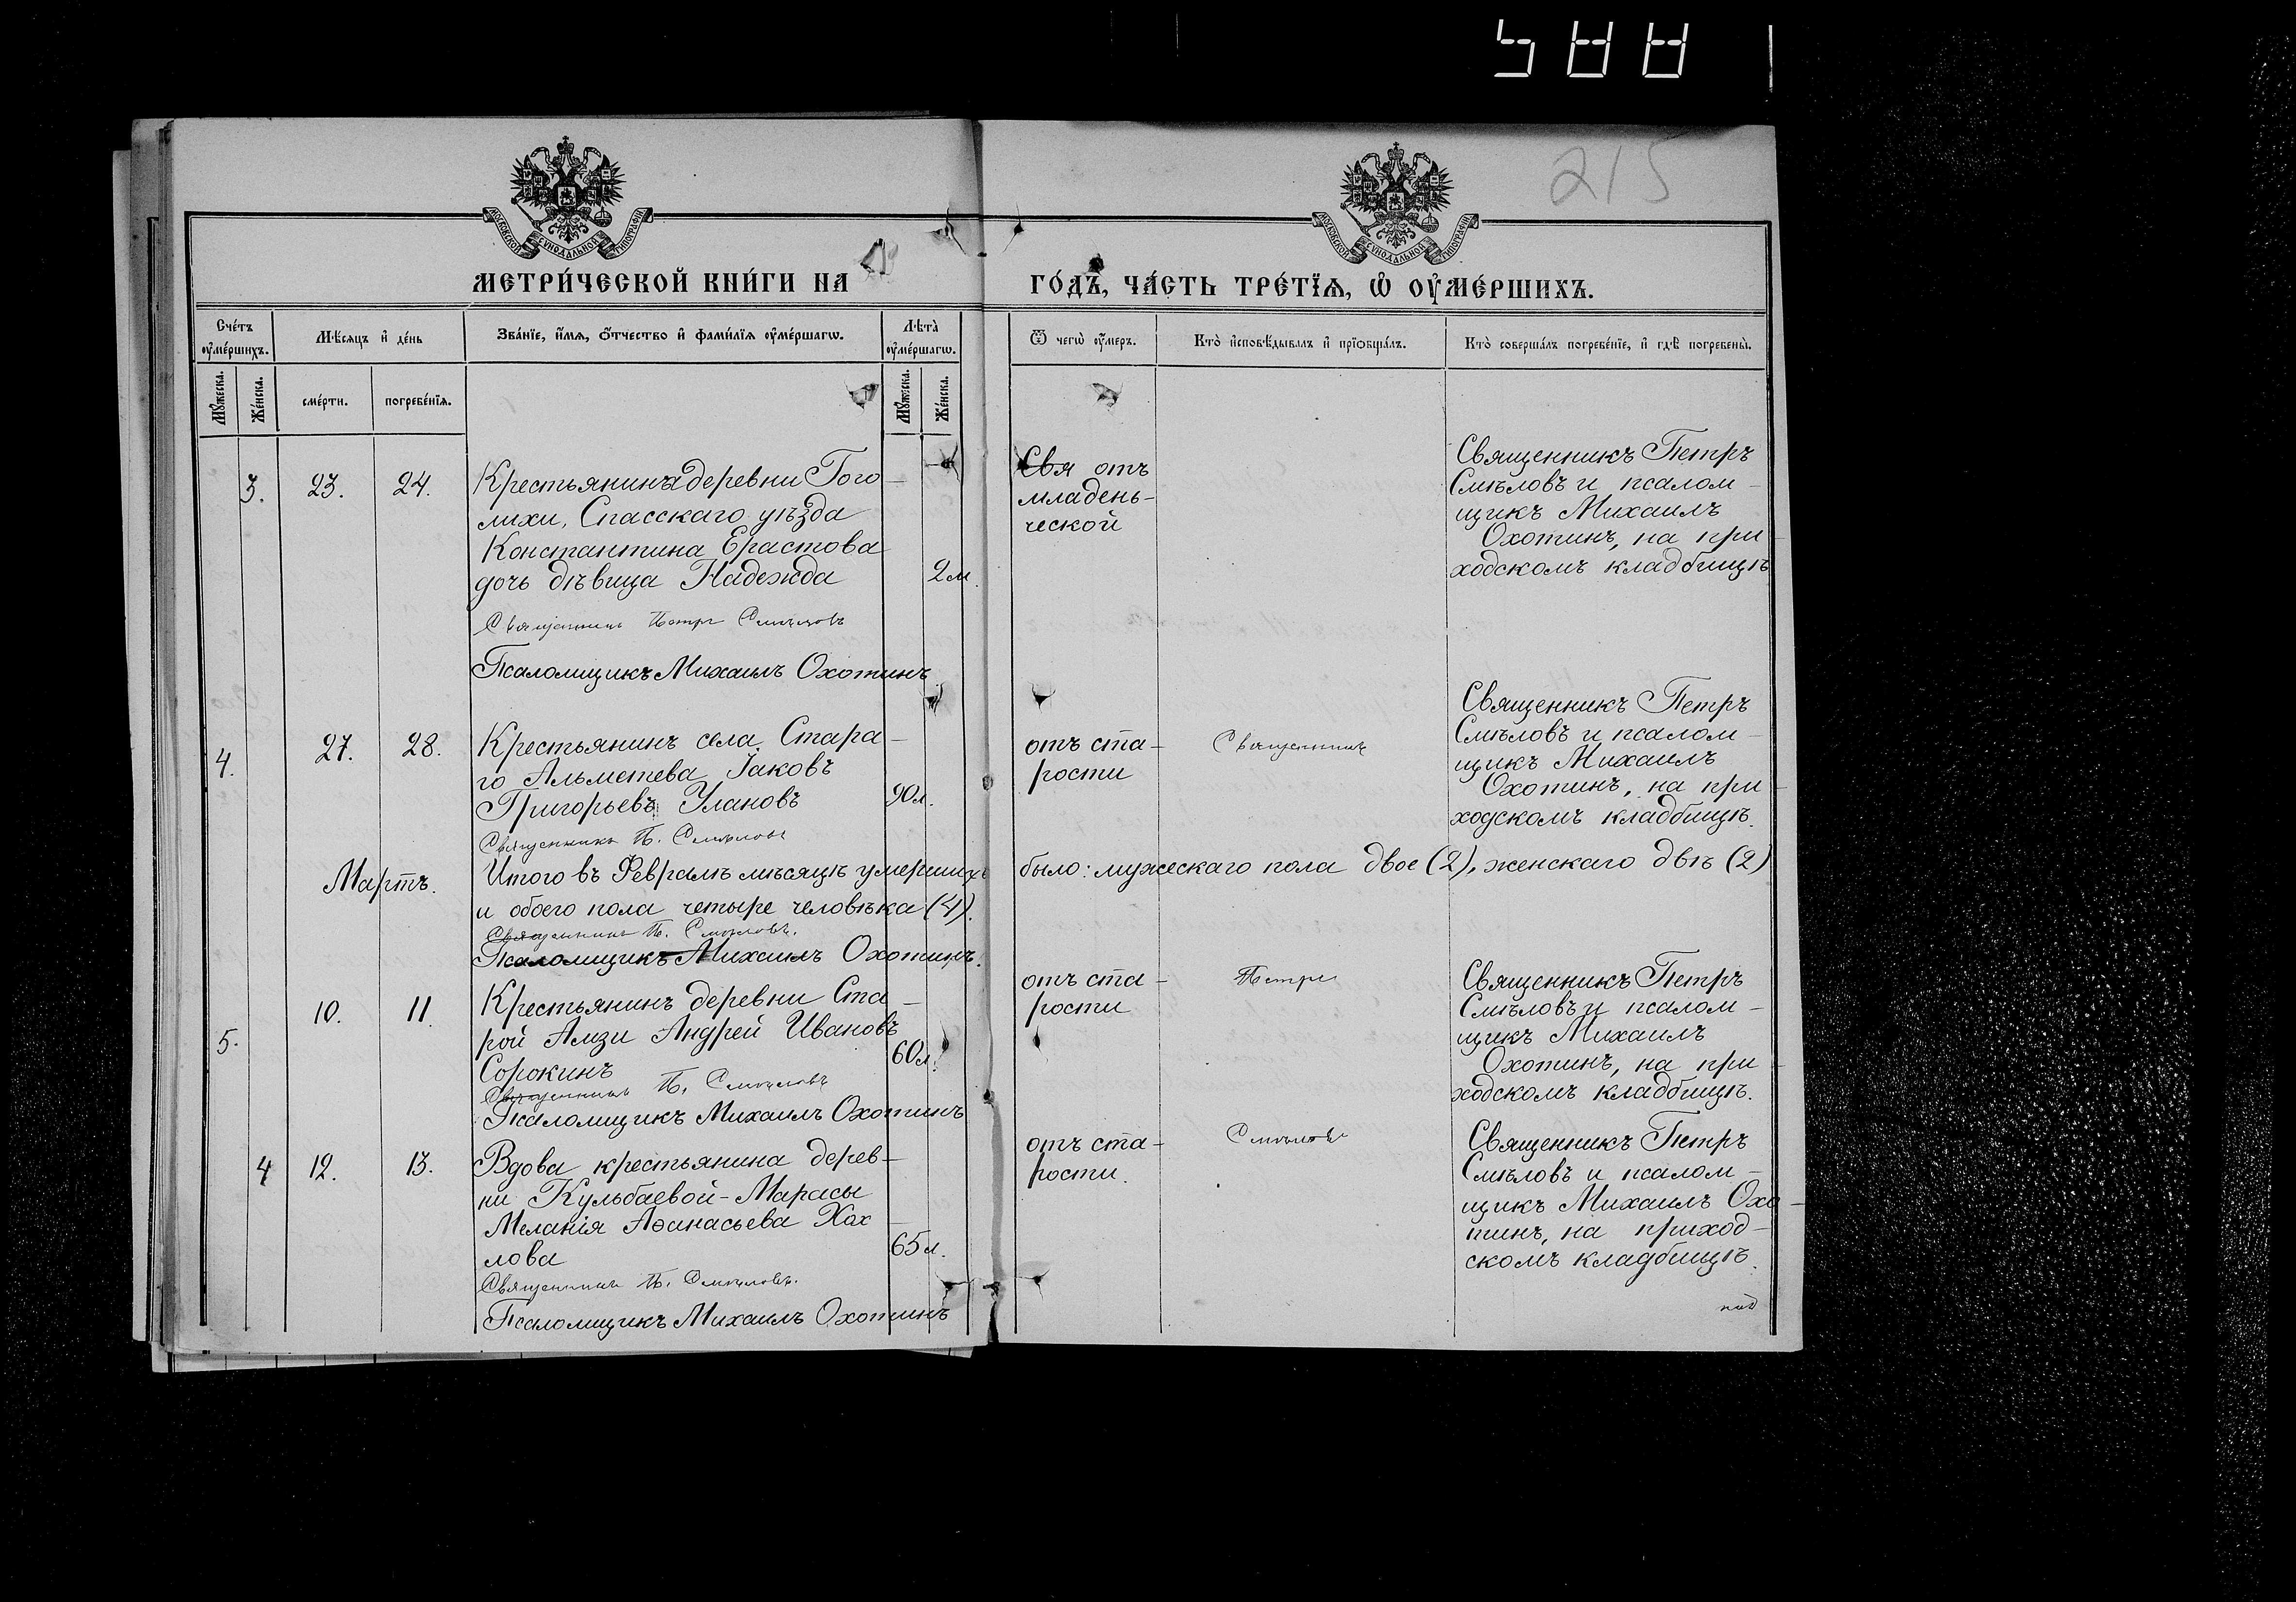 588
215
МОСКОВСКОЙ СѴНОДАЛЬНОЙ ТИПОГРАФІИ
МОСКОВСКОЙ СѴНОДАЛЬНОЙ ТИПОГРАФІИ
МЕТРИ́ЧЕСКОЙ КНИ́ГИ НА
ГО́ДЪ, ЧА́СТЬ ТРЕ́ТЇѦ, Ѡ҆ ОУ҆МЕ́РШИХЪ.
Сче́тъ оу҆ме́ршихъ.
Мѣ́сяцъ и҆ де́нь
Зва́нїе, и҆́мѧ, ѻ҆́тчество и҆ фами́лїѧ оу҆ме́ршагѡ.
Лѣ́та оу҆ме́ршагѡ.
Ѿ чегѡ̀ оу҆́меръ.
Кто̀ и҆сповѣ́дывалъ и҆ прїѡбща́лъ.
Кто̀ соверша́лъ погребе́нїе, и҆ гдѣ̀ погребены̀.
Мꙋ́жеска.
Же́нска.
сме́рти.
погребе́нїѧ.
Мꙋ́жеска.
Же́нска.
3. 23. 24.
Крестьянина деревни Того-
лихи, Спасскаго уѣзда
Константина Ерастова
дочь дѣвица Надежда
2 м.
Священникъ Петръ Смѣловъ
Псаломщикъ Михаилъ Охотинъ
Свя отъ
младень-
ческой
Священникъ Петръ
Смѣловъ и псалом-
щикъ Михаилъ
Охотинъ, на при-
ходскомъ кладбищѣ
4. 27. 28.
Крестьянинъ села Стара-
го Альметева Іаковъ
Григорьевъ Улановъ
90 л.
Священникъ П. Смѣловъ
отъ ста-
рости
Священникъ
Священникъ Петръ
Смѣловъ и псалом-
щикъ Михаилъ
Охотинъ, на при-
ходскомъ кладбищѣ.
Мартъ.
Итого въ Февралѣ мѣсяцѣ умершихъ было: мужескаго пола двое (2), женскаго двѣ (2)
и обоего пола четыре человѣка (4).
Священникъ П. Смѣловъ.
Псаломщикъ Михаилъ Охотинъ.
5. 10. 11.
Крестьянинъ деревни Ста-
рой Амзи Андрей Ивановъ
Сорокинъ
60 л.
Священникъ П. Смѣловъ
Псаломщикъ Михаилъ Охотинъ
отъ ста-
рости
Петръ
Священникъ Петръ
Смѣловъ и псалом-
щикъ Михаилъ
Охотинъ, на при-
ходскомъ кладбищѣ.
4 12. 13.
Вдова крестьянина дерев-
ни Кульбаевой-Марасы
Меланія Аѳанасьева Хох-
лова
65 л.
Священникъ П. Смѣловъ.
Псаломщикъ Михаилъ Охотинъ
отъ ста-
рости.
Смѣловъ
Священникъ Петръ
Смѣловъ и псалом-
щикъ Михаилъ Охо-
тинъ, на приход-
скомъ кладбищѣ.